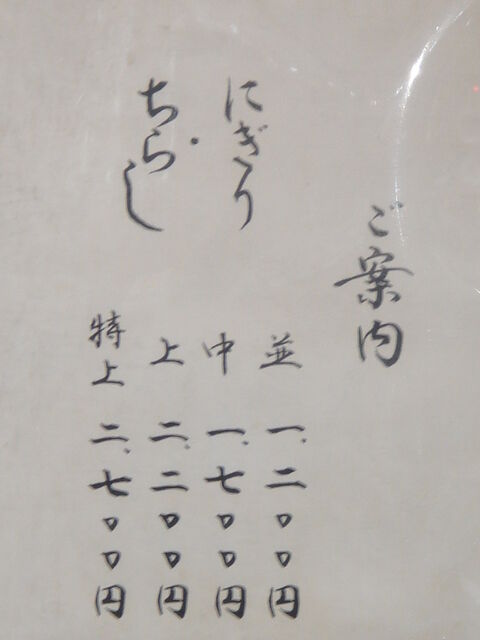 ご案内
にぎり・
ちらし
並 一、二〇〇円
中 一、七〇〇円
上 二、二〇〇円
特上 二、七〇〇円